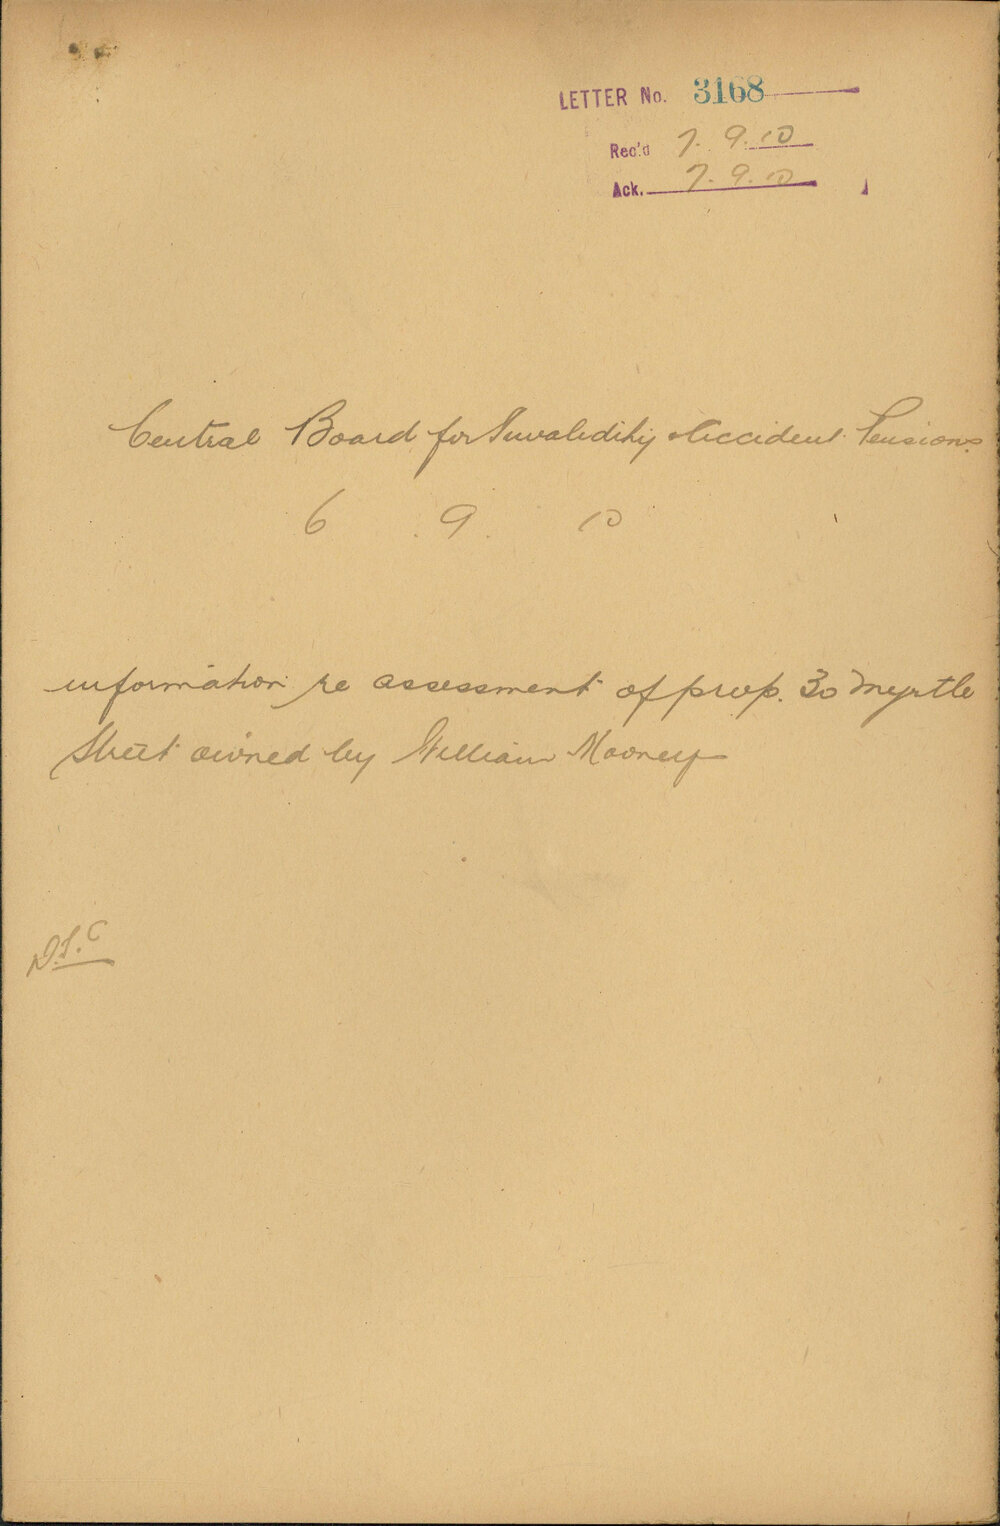 LETTER No. 3168
Rec'd 7. 9. 10
Ack. 7. 9. 10
Central Board for Invalidity & Accident Pensions
6 . 9 . 10
information re assessment of prop. 30 Myrtle
Street owned by William Mooney
D.T.C